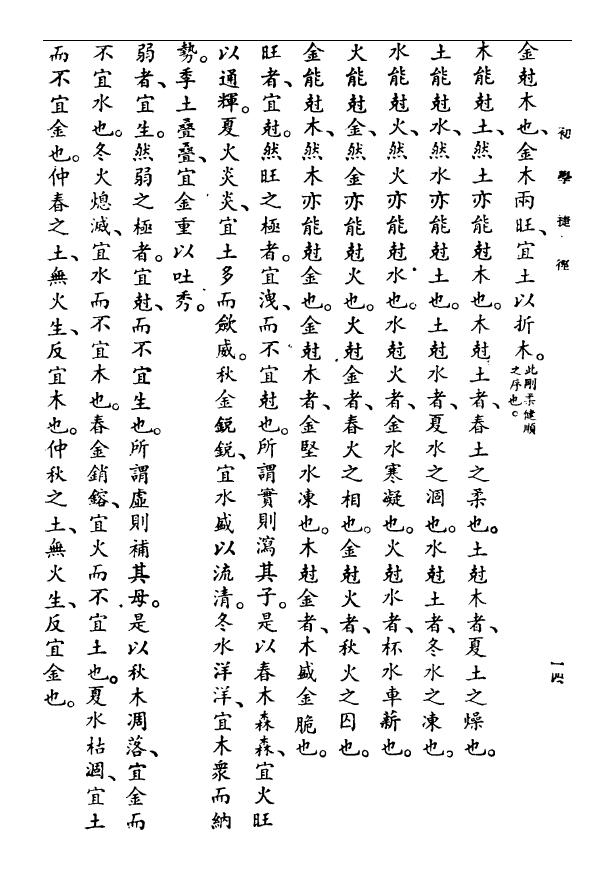 初學捷徑
一四
金尅木也、金木兩旺、宜土以折木。此剛柔健順
之序也。
木能尅土、然土亦能尅木也。木尅土者、春土之柔也。土尅木者、夏土之燥也。
土能尅水、然水亦能尅土也。土尅水者、夏水之涸也。水尅土者、冬水之凍也。
水能尅火、然火亦能尅水也。水尅火者、金水寒凝也。火尅水者、杯水車薪也。
火能尅金、然金亦能尅火也。火尅金者、春火之相也。金尅火者、秋火之囚也。
金能尅木、然木亦能尅金也。金尅木者、金堅水凍也。木尅金者、木盛金脆也。
旺者、宜尅。然旺之極者。宜洩、而不宜尅也。所謂實則瀉其子。是以春木森森、宜火旺
以通輝。夏火炎炎、宜土多而歛威。秋金銳銳、宜水盛以流清。冬水洋洋、宜木衆而納
勢。季土叠叠、宜金重以吐秀。
弱者、宜生。然弱之極者。宜尅、而不宜生也。所謂虛則補其母。是以秋木凋落、宜金而
不宜水也。冬火熄滅、宜水而不宜木也。春金銷鎔、宜火而不宜土也。夏水枯涸、宜土
而不宜金也。仲春之土、無火生、反宜木也。仲秋之土、無火生、反宜金也。